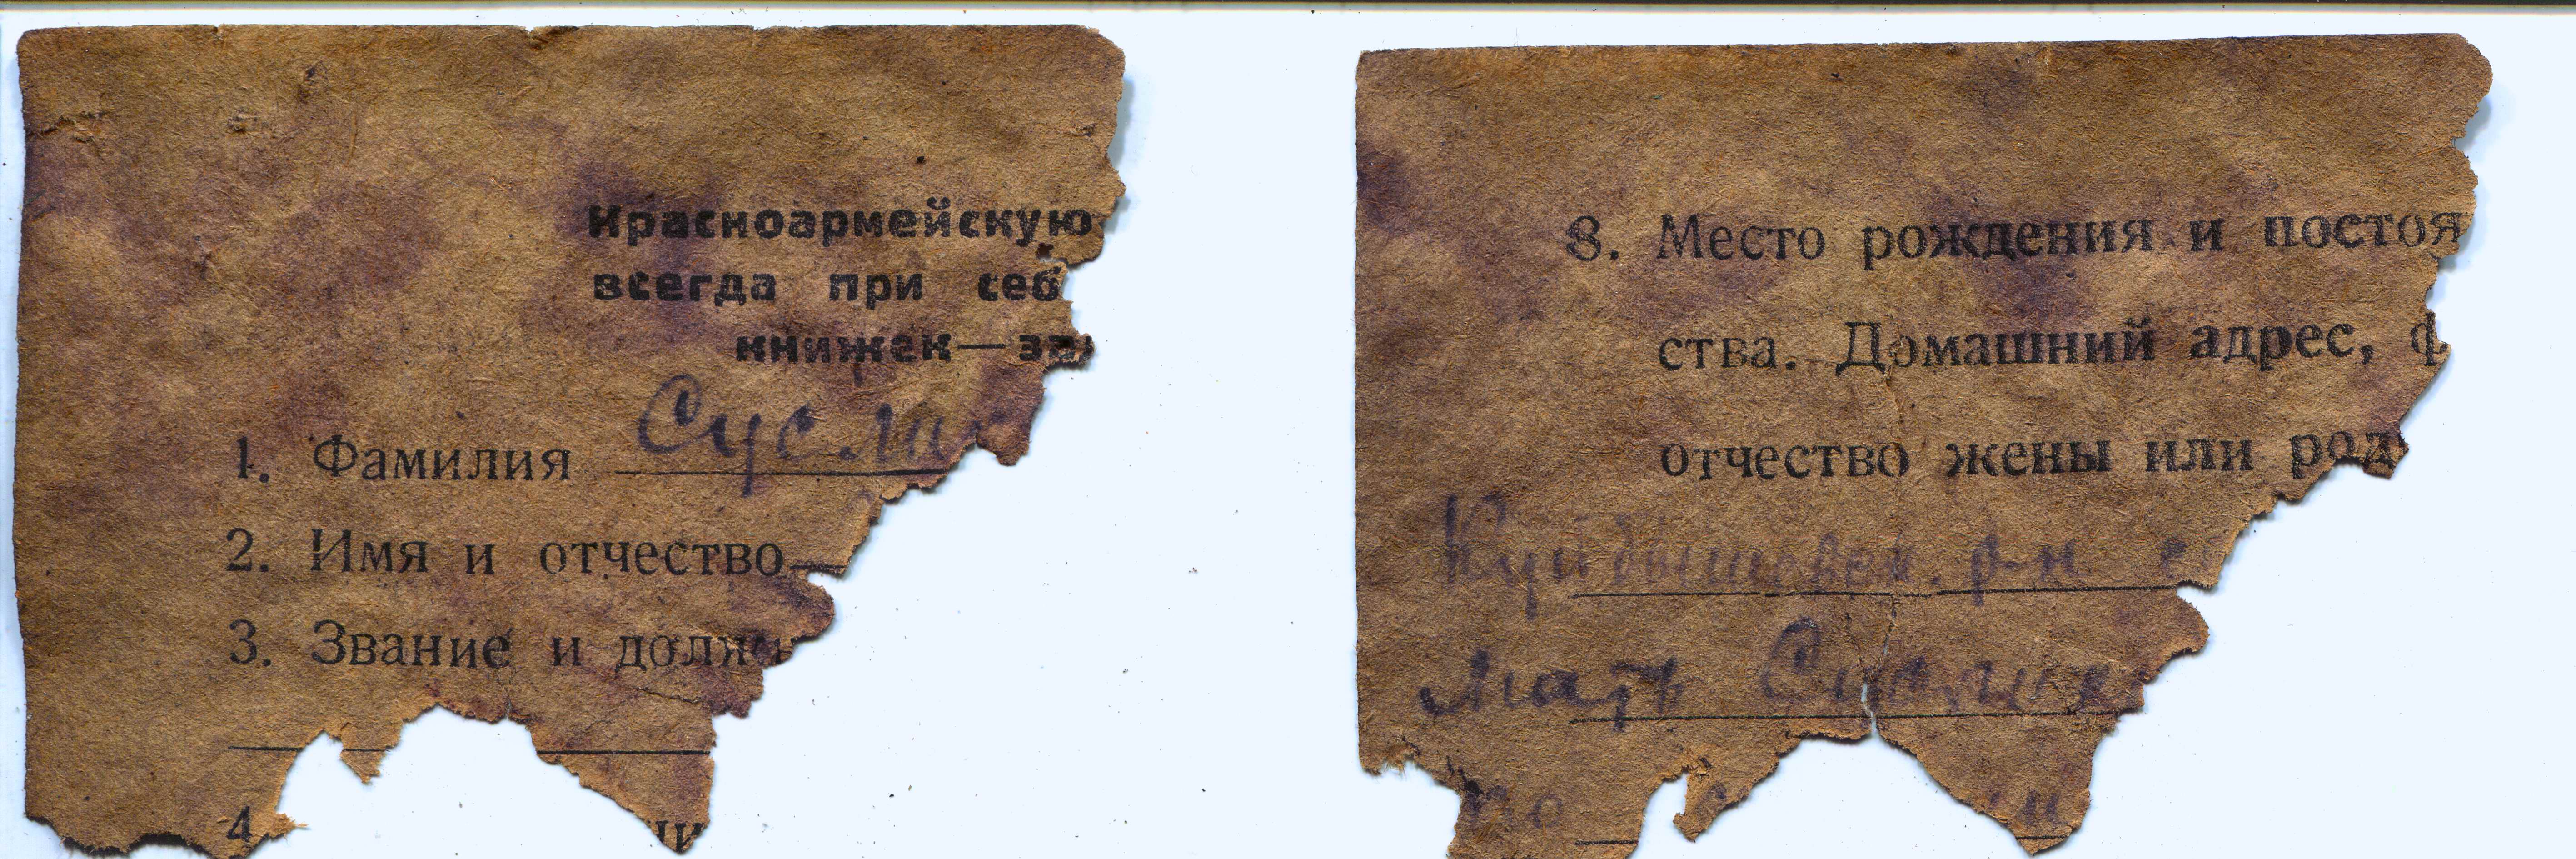 Красноармейскую
всегда при себ
книжек—за
1. Фамилия Сусла
2. Имя и отчество
3. Звание и должн
4.
8. Место рождения и постоя
ства. Домашний адрес, ф
отчество жены или род
Куйбышевск. р-н с
Мать
по